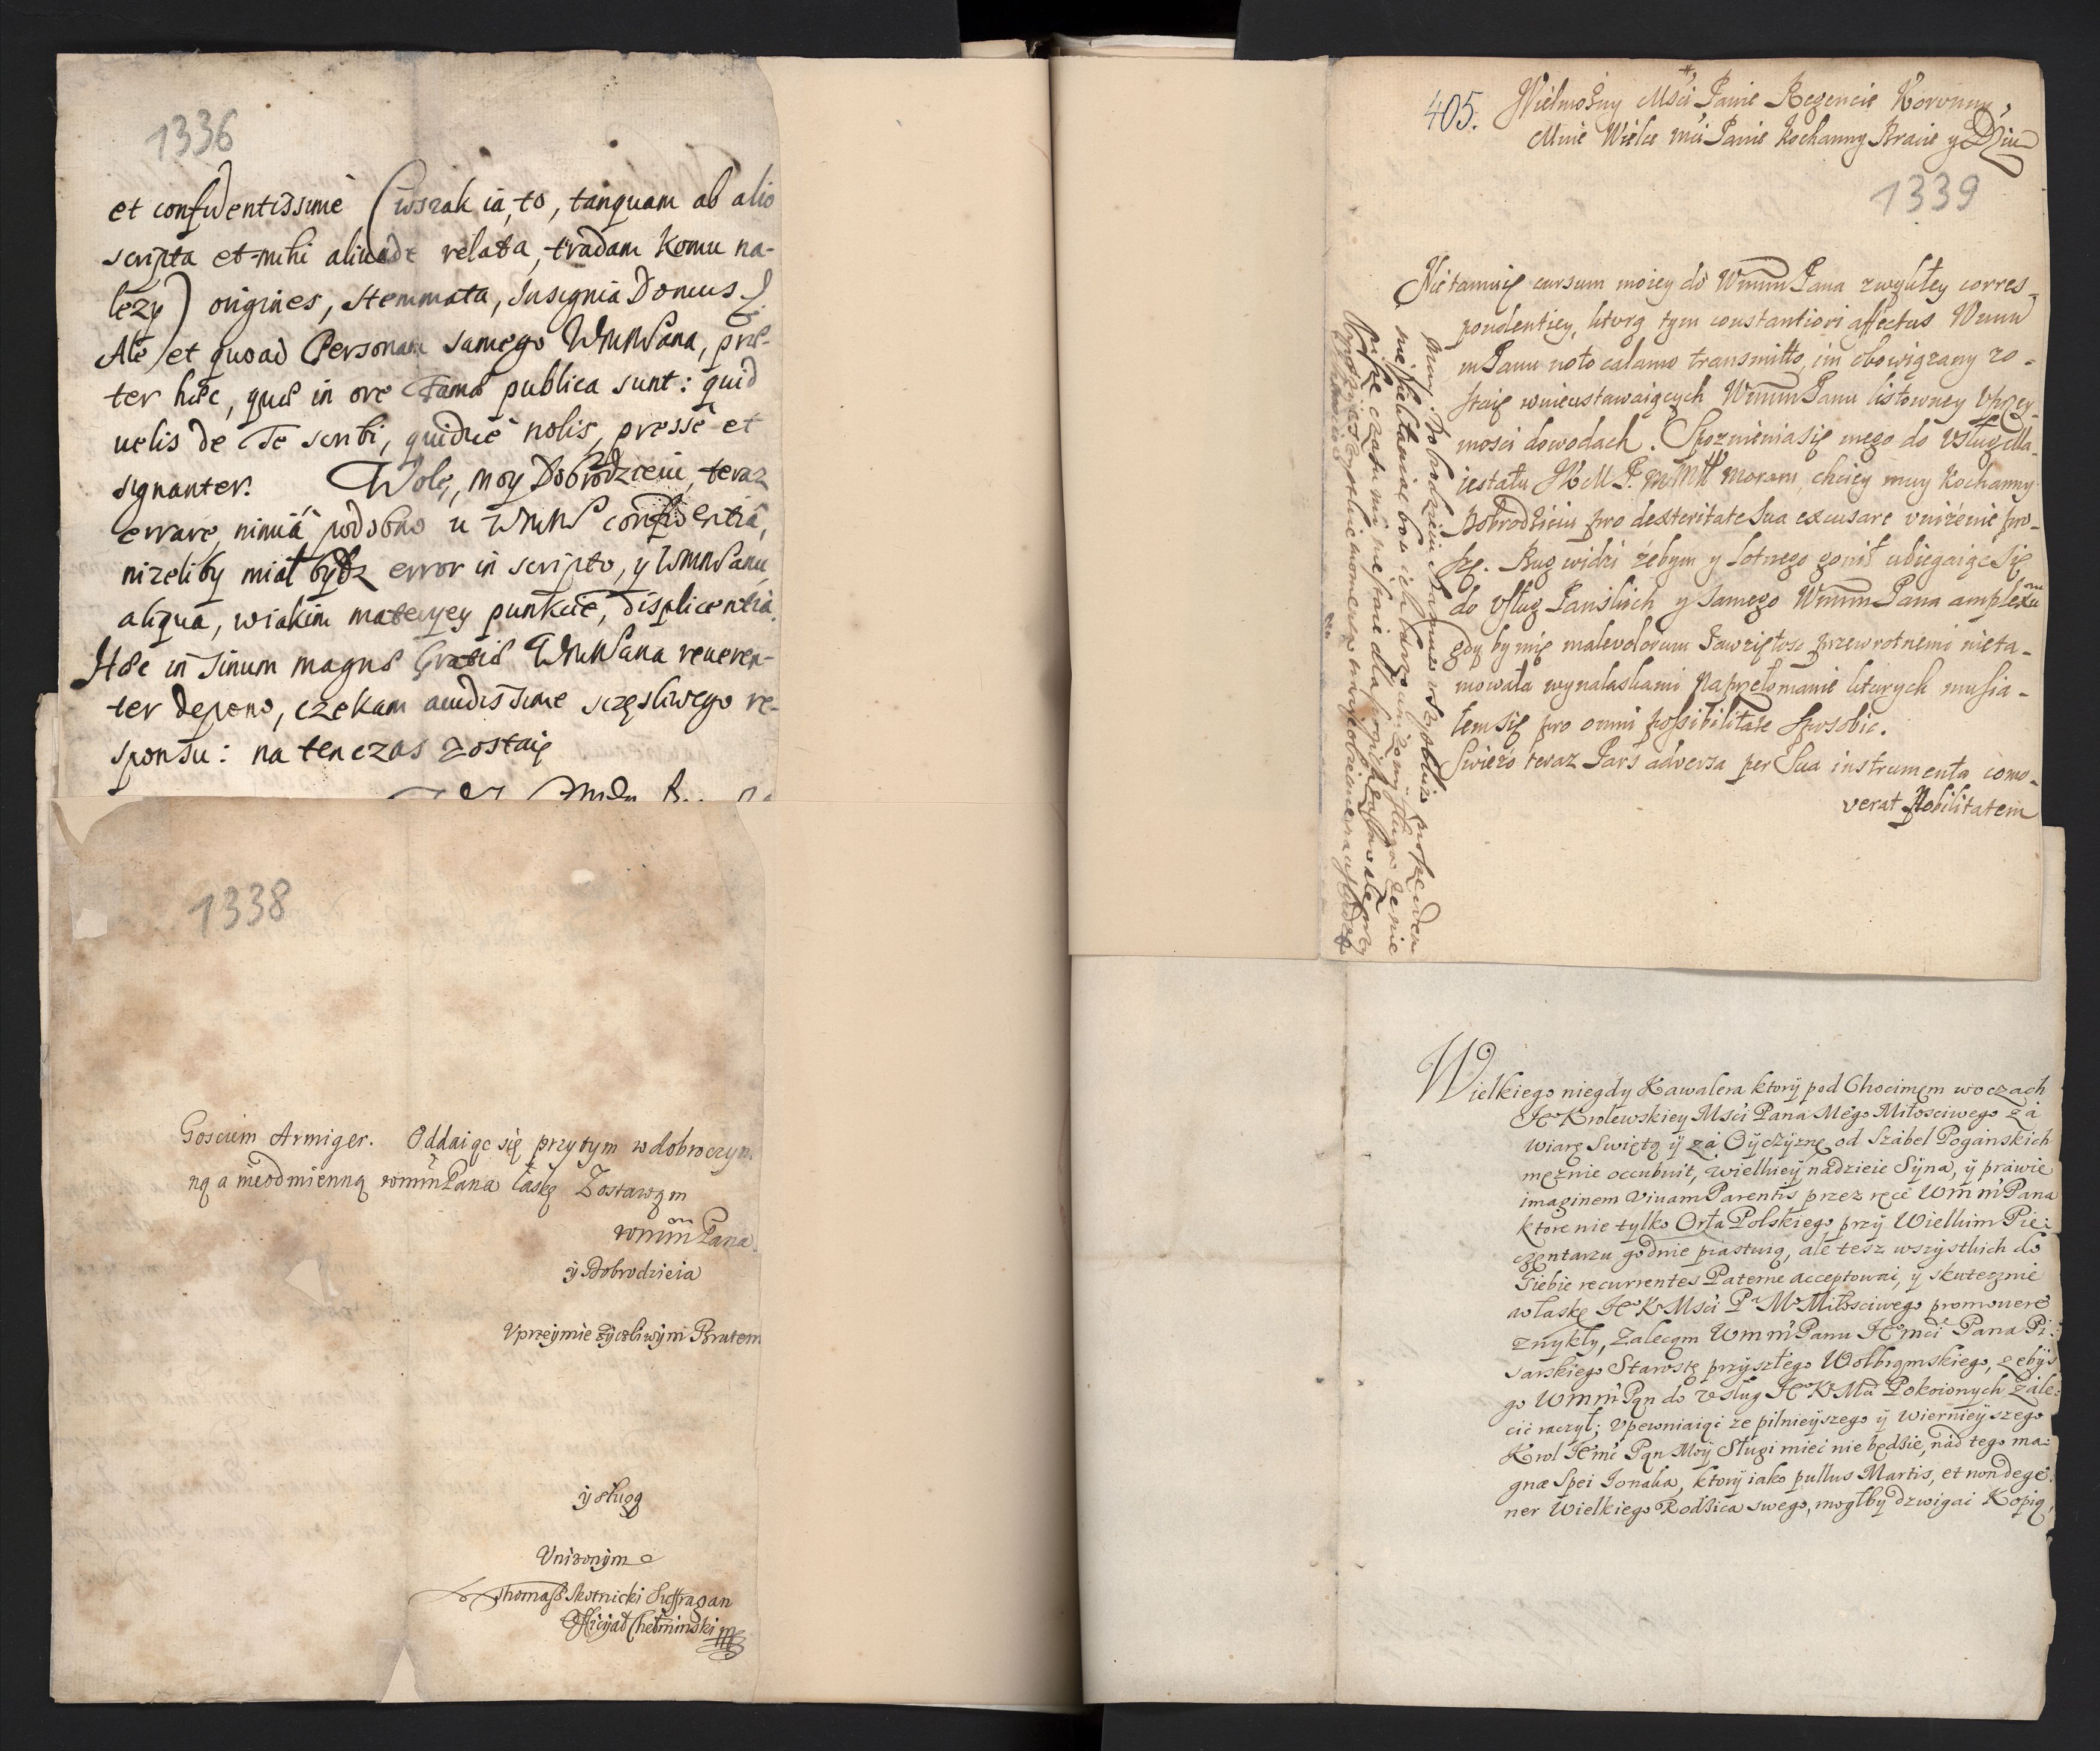 1336
et confidentissimè (wszak ia, to, tanquam ab alio
scripta et mihi aliunde relata, tradam komu na-
leży) origines, stemmata, Insignia Domus
Ale et quoad Personam samego WMMPana, præ-
ter hæc, quæ in ore Famæ publica sunt: quid
uelis de Te scribi, quidue nolis, pressè et
signanter. Wolę, moy Dobrodzieiu, teraz
errare, nimiâ podobno u WMMP confidentiâ,
nizeliby miał bydz error in scripto, y WMMPanu
aliqua, wiakim materyey punkcie, displicentia.
Hæc in sinum magnæ Gratiæ WMMPana reueren-
ter depono, czekam auidissime szczęsliwego re-
sponsu: na ten czas zostaię
1338
Gosciem Armiger. Oddaiąc się przytym w dobroczyn
ną a nieodmienną wmmPana łaskę Zostawam
wmmPana
ÿ Dobrodzieia
Vprzeymie życzliwÿm Bratem
ÿ sługą
Vnizonÿm
Thomasz Skotnicki Suffragan
Officÿał Chełminski
405. Wielmożny Msci Panie Regencie Koronny,
Mnie Wielce mci Panie kochanny Bracie y
1339
Nie tamuię cursum moiey do WmmPana zwykłey corres-
pondentiey, ktorą tym constantiori affectus Wmm
mPanu noto calamo transmitto, im obowiązany zo-
staię wnieustawaiących WmmPanu listowney Vprzey-
mosci dowodach. Spoznienia się mego do Vsług Ma-
iestatu JKM P. moram, chciey muy kochanny
Dobrodzieiu pro dexteritate sua excusare vniżenie pro-
szę. Bug widzi żebym y lotnego gonił ubiegaiąc się
do Vsług Panskich y samego WmmPana amplexu
gdy by mię malevolorum zawziętosc przewrotnemi nieta-
mowała wynalaskami Naprzełomanie ktorych musia-
łem się pro omni possibilitate sposobic.
Swiezo teraz Pars adversa per sua instrumenta como-
verat Nobilitatem
Wielkiego niegdy Kawalera ktory pod Chocimem w oczach
JKKrolewskiey Msci Pana Mego Miłosciwego za
Wiarę Swiętą ÿ za Oÿczÿznę od Szabel Poganskich
męznie occubuit, wielkieÿ nadzieie Sÿna, ÿ prawie
imaginem Viuam Parentis przez ręce WmmPana
ktore nie tylko Orła Polskiego przÿ Wielkim Pie:
czentarzu godnie piastuią, ale tesz wszÿstkich do
Siebie recurrentes Paterne acceptowac, ÿ skutecznie
w łaskę JKMsci P M Miłosciwego promouere
zwykły, Zalecam WmmPanu Jmci Pana Pi:
sarskiego Starostę przÿszłego Wolbramskiego, zebÿs
go WmmPan do Vsług JKM Pokoionych Zale:
cic raczył; Vpewniaiąc ze pilnieÿszego ÿ wiernieÿszego
Krol Jemc Pan Moÿ Sługi miec nie będzie, nad tego ma:
gnæ Spei Ionaka, ktorÿ iako pullus Martis, et non dege:
ner Wielkiego Rodzica swego, mogłby dzwigac Kopią,